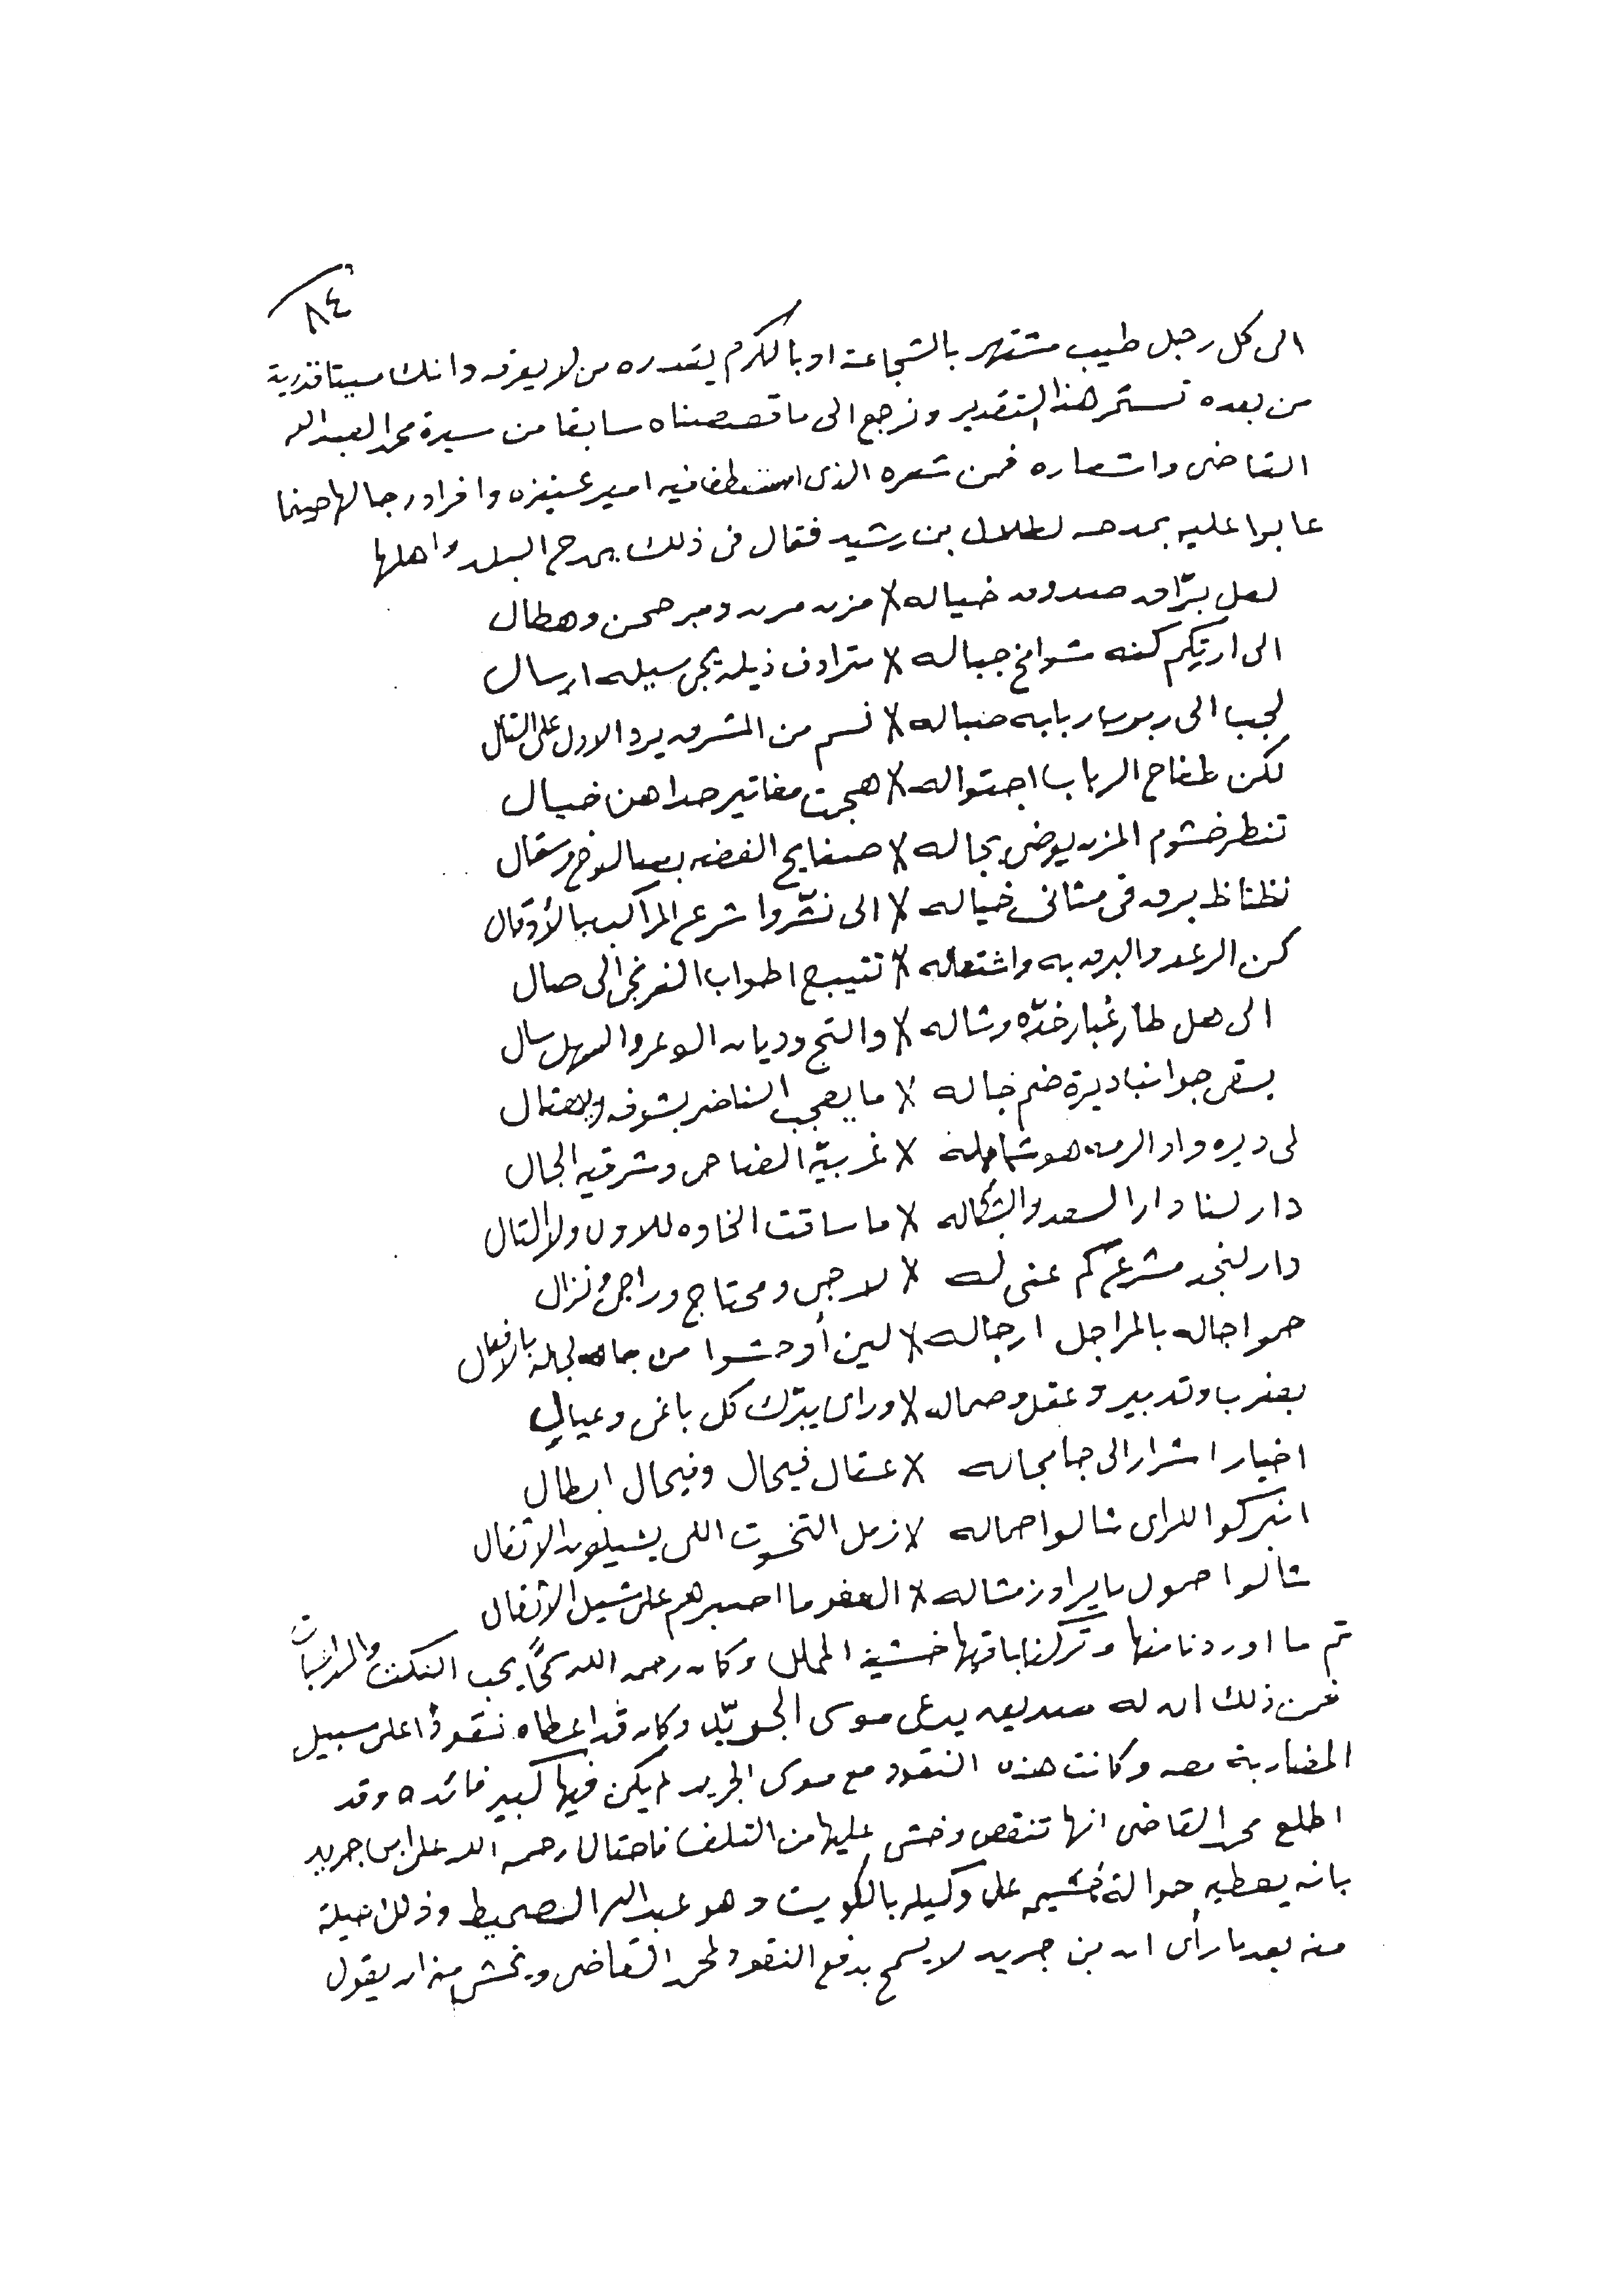 ٨٤
الى كل رجل طيب مشتهر بالشجاعة او بالكرم يقدره من لا يعرفه وانك ميتا فذرية
من بعده تستمر هذا التقدير ونرجع الى ما قصصناه سابقا من سيرة محمد العبدالله
القاضى واشعاره فمن شعره الذى استعطف فيه امير عنيزه وافراد رجالها حينما
عابوا عليه بمدحه لطلال بن رشيد فقال فى ذلك يمدح البلد واهلها
لعل برّاق صدوق خياله × مزن مرن ومبر صحن وهطال
الى ارتكم كنه شوامخ جباله × مترادف ذيله يجى سيله ارسال
لجب الى ربابه حباله × نسم من المشرق يرد الاول على التال
لكن طفاح الرباب اجتواله × هجت مغاتير حداهن خيال
تنطر خشوم المزن يوضى بجاله × صفايح الفضه وسقال
نظناظ برق فى مثانى خياله × الى نشّروا شرع المراكب بالأوقال
كن الرعد والبرق به واشتعاله × تثييج اطواب الفرنجى الى صال
الى هل طار غبار خدّه وشاله × والتج وديان الوعر والسهل سال
يسقى جوانب ديرة ضم خاله × ما يعجب الناضر بشوفه ويهتال
لى ديره واد الرمه هو شماله × غربيّة الضاحى وشرقيه الجال
دار لنا دار السعد والشكاله × ما ساقت الخاوه للاول ولا التال
دار لنجد مشرع كم عنى له × لاجى ومحتاج وراجى ونزال
حموا جاله بالمراجل ارجاله × لين أوحشوا من جاه لجاله بالافعال
بضرب وتدبير وعقل وحماله × وراى يترك كل باغى وعيال
اخيار اشرار الى جا مجاله × عقال فيحال وفيحال ابطال
انبركوا للراى شالوا حماله × زمل التخوت اللى يشيلون الاثقال
شالوا حمول ما يراوز مشاله × العفو ما اصبرهم على شيل الاثقال
تم ما اوردنا منها وتركنا باقيها خشية الملل وكان رحمه الله يحب النكت
فمن ذلك ان له صديق يدعى موسى الجريّد وكان قد اعطاه نقودًا على سبيل
المضاربة معه وكانت هذه النقود مع موسى الجريد لم يكن فيها كبير فائده وقد
اطلع محمد القاضى انها تنقص وخشى عليها من التلف فاحتال رحمه الله على ابن جريد
بانه يعطيه حوالة على وكيله بالكويت وهو عبدالله الصميط وذلك حيلة
منه بعد ما رأى ان بن جريد لا يسمح بدفع النقود لمحمد القاضى ويخشى منه ان يقول